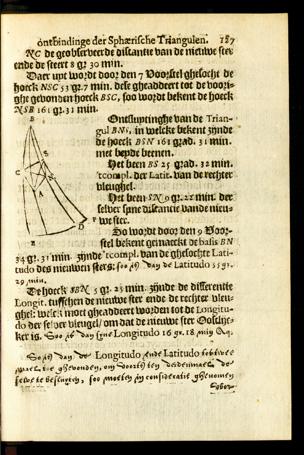 ontbindinge der Sphærische Triangulen. 187
NC de geobserveerde distantie van de nieuwe ster
ende de steert 8 gr. 30 min.
Daer upt wordt door den 7 Voorstel ghesocht de
hoeck NSC 53 gr. min. dese gheaddeert tot de voori-
ghe gevonden hoeck BSC, soo wordt bekent de hoeck
NSB 161 gr. 31 min.
Ontsluptinghe van de Trian-
gul BNS, in welcke bekent zijnde
de hoeck BSN 161 grad. 31 min.
met beyde beenen.
Het been BS 25 grad. 32 min.
'tcompl. der Latit. van de rechter
vleughel.
Het been SN 9 gr. 22 min. der
selver zyne distantie vande nieu-
we ster.
So wordt door den 9 Voor-
stel bekent gemaeckt de basis BN
34 gr. 31 min. zijnde 'tcompl. van de ghesochte Lati-
tudo des nieuwen sters: soo is dan de Latitudo 55 gr.
29 min.
De hoeck SBN 5 gr. 23 min. zijnde de differentie
Longit. tusschen de nieuwe ster ende de rechter vleu-
ghel: welck moet gheaddeert worden tot de Longitu-
do der selver vleugel, om dat de nieuwe ster Oostlic-
ker is. Soo is dan syne Longitudo 16 gr. 18 min
So is dan de Longitudo ende Latitudo
ghevonden, om
de
soo moeten in consideratie ghenomen
B
S
C
N
A
D
E